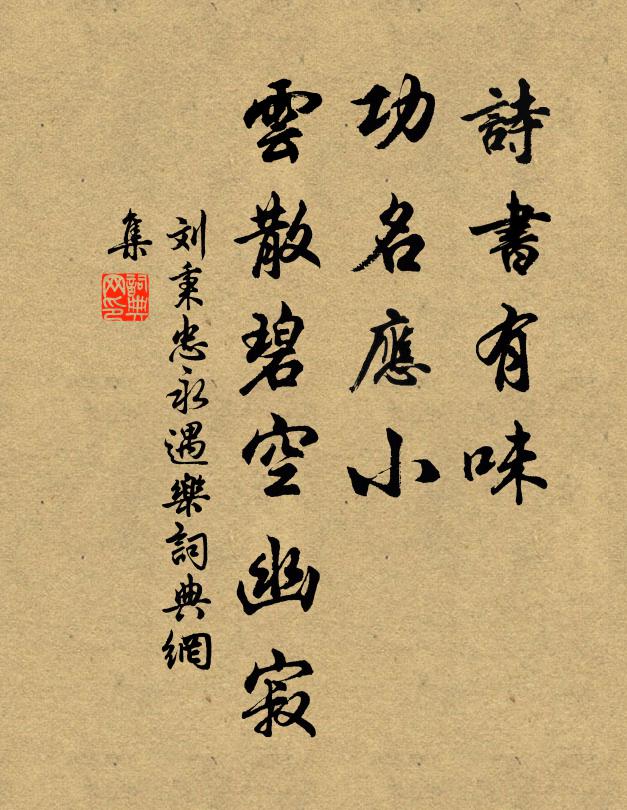 詩書有味
功名應小
雲散碧空幽寂
刘秉忠永遇樂詞典網
集
詞典
网印